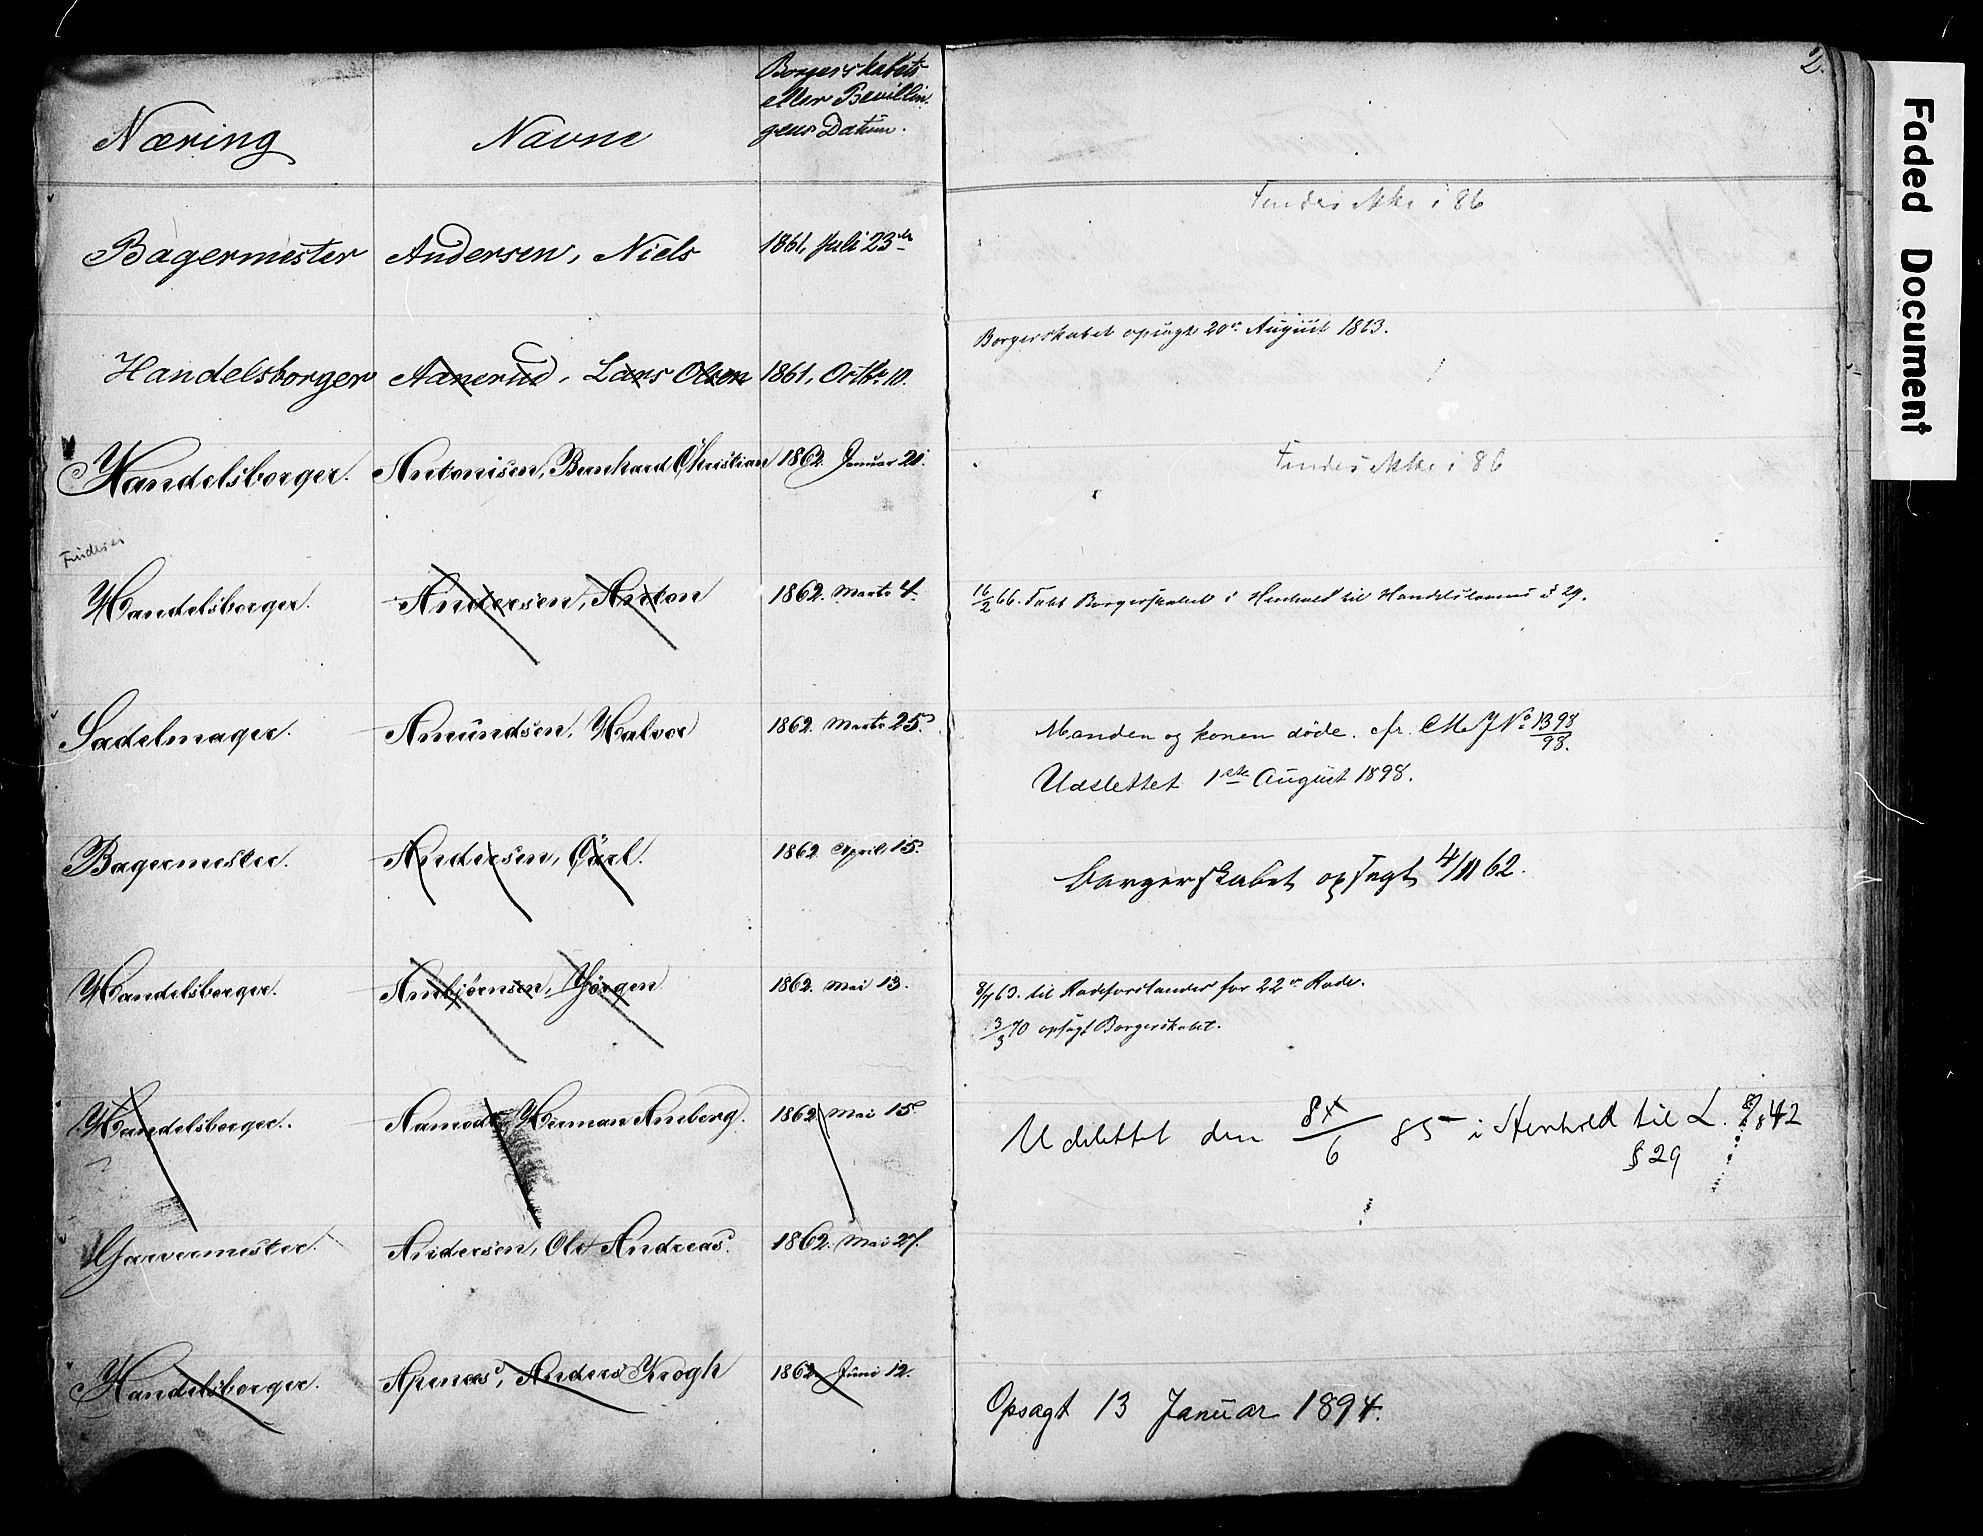 2.
Faded Document
Næring
Navne
Borgerskabets
eller Bevillin-
gens Datum.
Findes ikke i 86
Bagermester Andersen, Niels 1861, Juli 23de
Borgerskabet opsagt 20de August 1863.
Handelsborger Aanerud, Lars Olsen 1861, Octbr 10.
Handelsborger. Antonisen, Bernhard Christian 1862 Januar 21.
Findes ikke i 86
Findes ei
Handelsborger. Andersen, Anton 1862. Marts 4.
16/2 66. Tabt Borgerskabet i Henhold til Handelslovens § 29.
Sadelmager. Amundsen, Halvor 1862 Marts 25.
Manden og konen døde. cfr. CMa JNo 1398/98.
Udslettet 1ste August 1898.
Bagermester. Andersen, Carl. 1862 April 15.
Borgerskabet opsagt 4/11 62.
Handelsborger. Arnbjørnsen, Jørgen 1862. Mai 13.
8/7 63. til Rodeforstander for 22de Rode.
3/3 70 opsagt Borgerskabet.
Handelsborger. Aamodt, Herman Amberg. 1862 Mai 15.
Udslettet den 8/6 85 i Henhold til L. 8/8 42
§ 29
Garvermester. Andersen, Ole Andreas. 1862. Mai 27.
Handelsborger. Apenæs, Anders Krogh 1862. Juni 12.
Opsagt 13 Januar 1894.